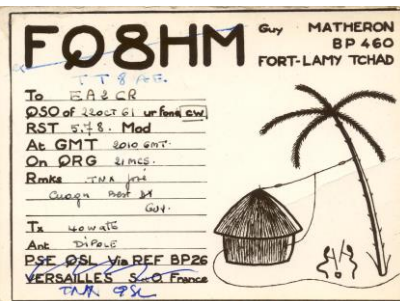 FQ8HM
Guy MATHERON
BP 460
FORT-LAMY TCHAD
TT8AF.
To EA2CR
QSO of 22OCT 61 ur fone cw
RST 578. Mod
At GMT 2010 GMT.
On QRG 21MCS.
Rmks TNX José
Cuagn Best DX
Guy.
Tx 40 watts
Ant DIPOLE
PSE QSL Via REF BP26
VERSAILLES S.-O. France
TNX QSL